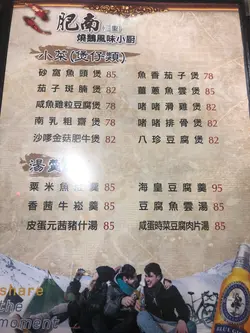 肥南
燒鵝風味小廚
小菜(煲仔類)
砂窩魚頭煲 85
茄子斑腩煲 82
咸魚雞粒豆腐煲 78
南乳粗齋煲 78
沙嗲金菇肥牛煲 82
魚香茄子煲 78
薑蔥魚雲煲 85
啫啫滑雞煲 82
啫啫
八珍豆腐煲 82
湯羹
粟米魚肚羹 85
香茜牛崧羹 85
皮蛋元茜豬什湯 85
海皇豆腐羹 95
豆腐魚雲湯 85
咸蛋時菜豆腐肉片湯 85
share
the
moment